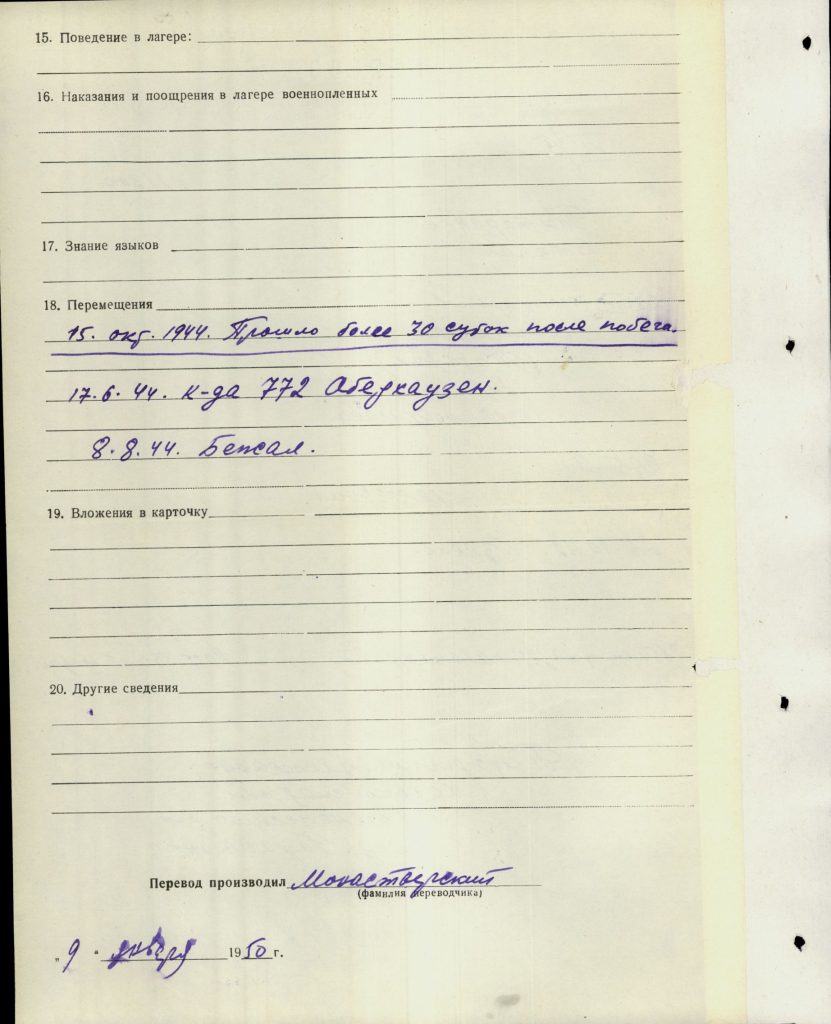 15. Поведение в лагере:
16. Наказания и поощрения в лагере военнопленных
17. Знание языков
18. Перемещения
15. окт. 1944. Прошло более 30 суток после побега.
17.6.44. К-да 772 Оберхаузен.
8.8.44. Бежал.
19. Вложения в карточку
20. Другие сведения
Перевод производил Монастырский
(фамилия переводчика)
„9 “ января 1950 г.